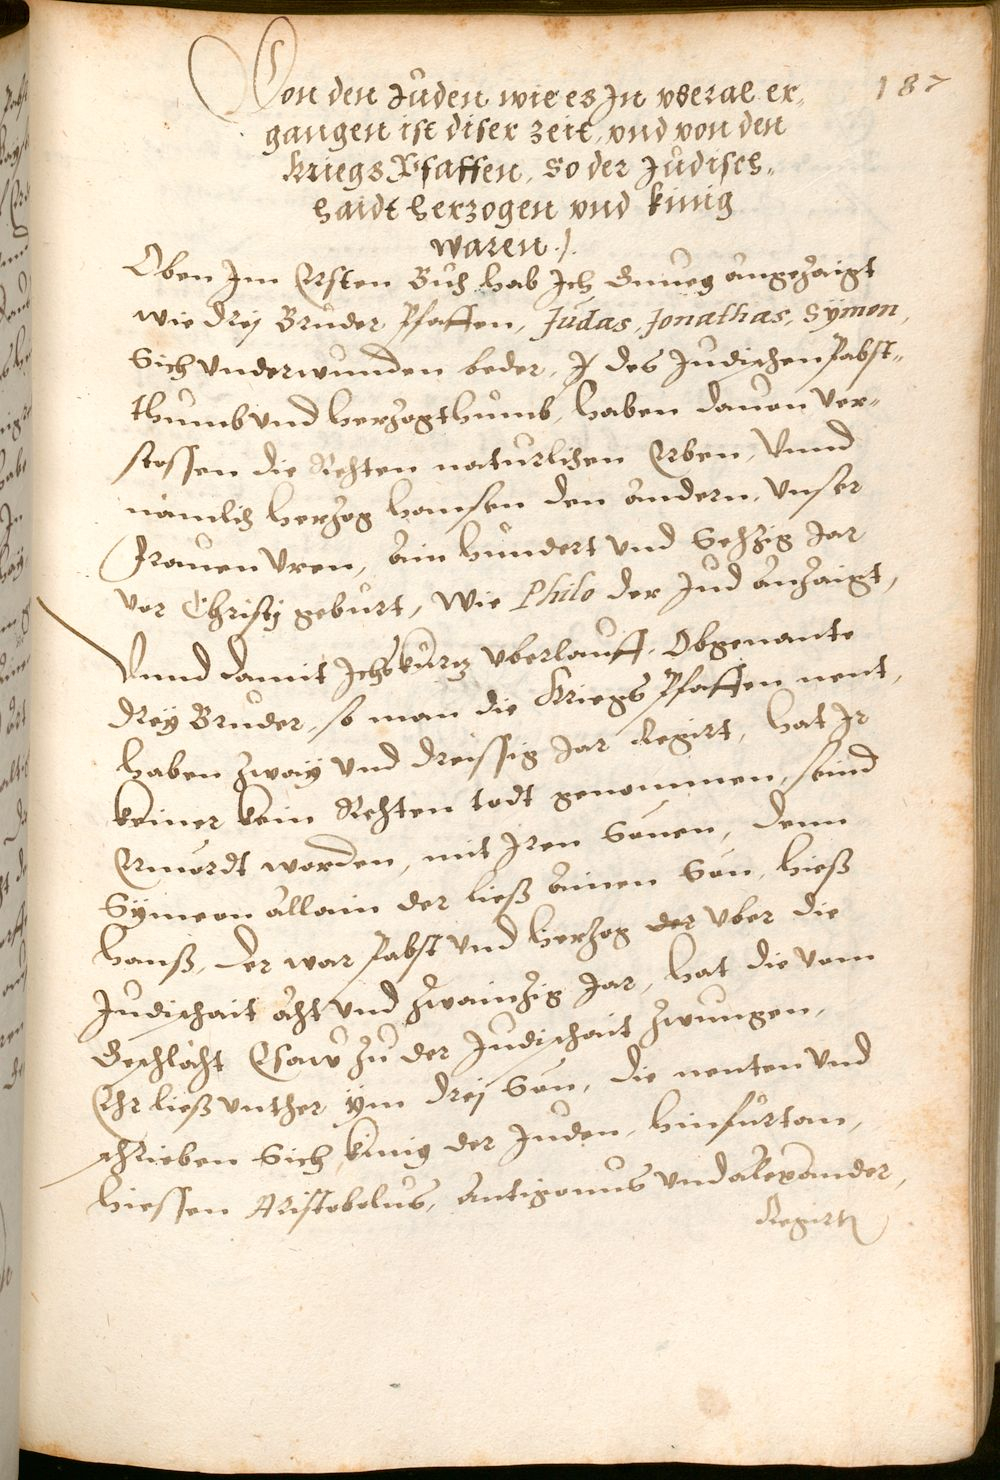 187
Von den Juden wie es In yseral er„
gangen ist diser zeit, vnd von den
Kriegs Pfaffen, so der Judisch„
haidt herzogen vnd kinig
waren./.
Oben Im Ersten Buch hab Ich Gnueg angezaigt
wie drej Bruder Pfaffen, Judas, Jonathas, Symon,
Sich vnderwunden beder, des Judischen Pabst„
thumb vnd herzogthumb, haben dauon ver„
stossen die Rechten naturlichen Erben, Vnnd
nämlich herzog hansen den andern, vnser
frauen Vren, ain hundert vnd Sechzig Jar
vor Christj geburt, Wie Philo der Jud anzaigt,
Vnnd damit Ichs kurtz vberlauff, Obgenante
drey Bruder, so man die Kriegs Pfaffen nent,
haben zway vnd dreissig Jar Regirt, hat Ir
keiner kein Rechten todt genommen, seind
Ermordt worden, mit Iren Sönen, denn
Symeon allain der ließ ainen Son, hieß
hanß, der war Pabst vnd herzog der vber die
Judischait acht vnd zwainzig Jar, hat die vom
Geschlächt Esaw zu der Judischait zwungen,
Ehr ließ vnther ym drej Son, die nenten vnd
schrieben Sich kinig der Juden, hinfurtan,
hiessen Aristobolus, Antigonus vnd Alexander,
Regirt